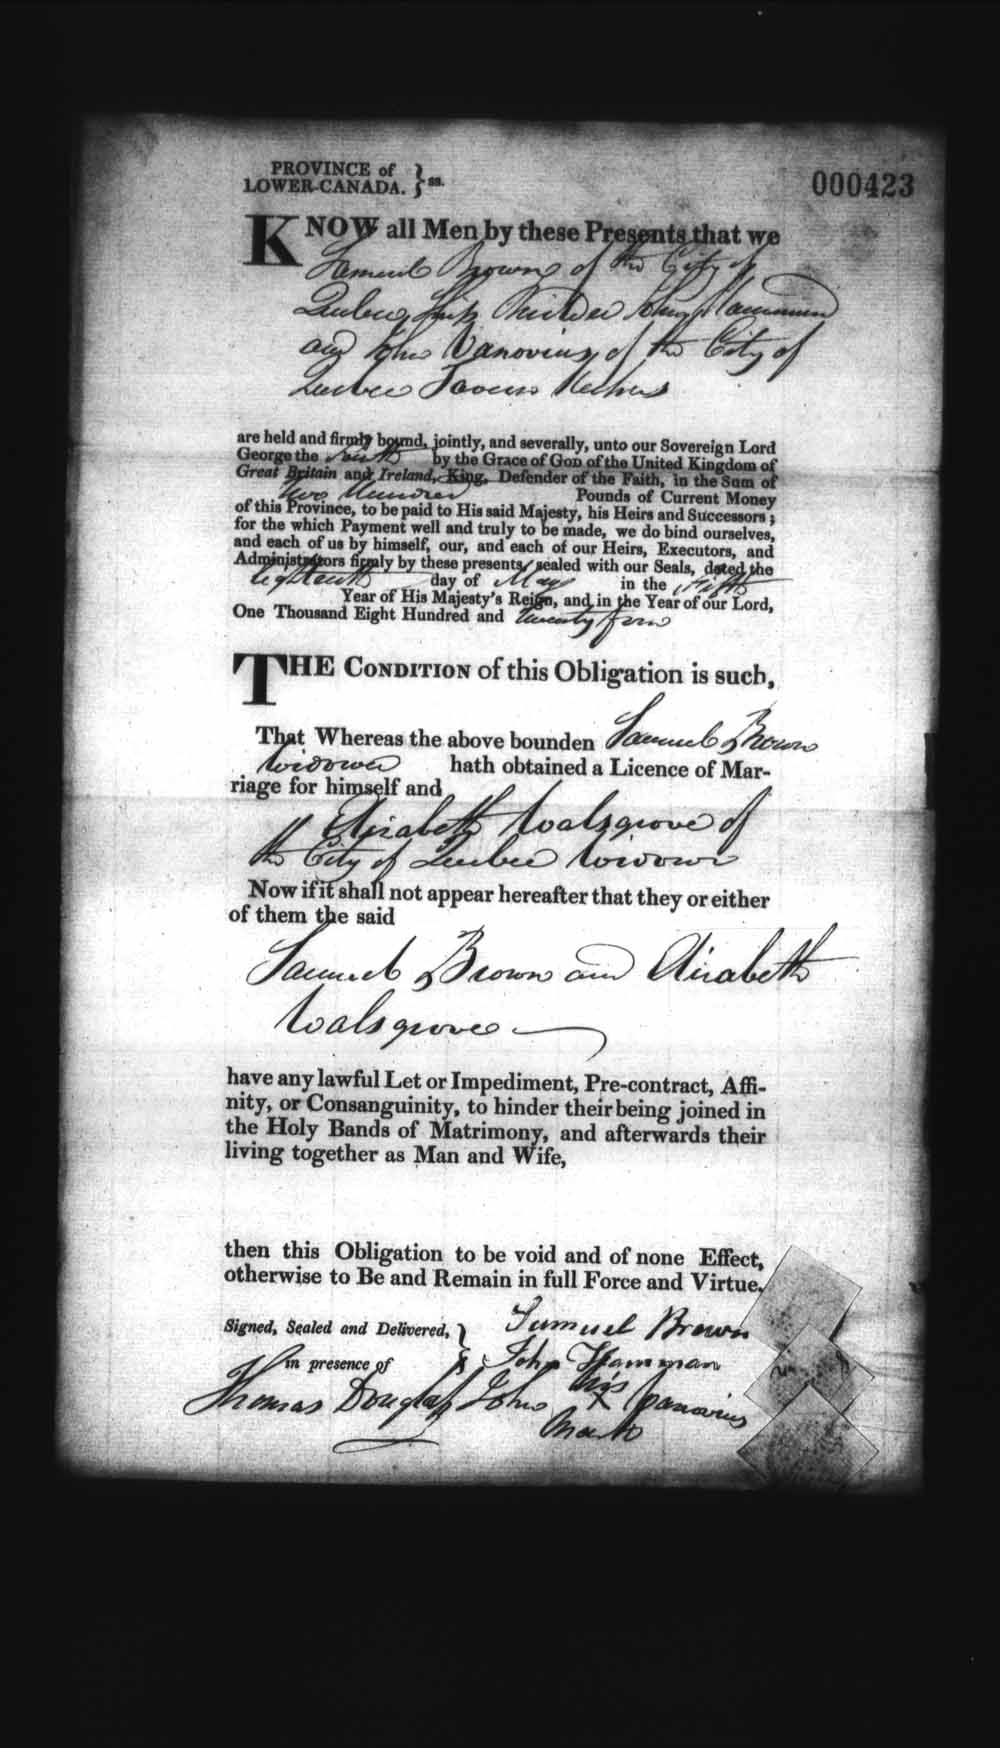 PROVINCE of
LOWER-CANADA. } ss.
000423
KNOW all Men by these Presents that we
Samuel Brown of the City of
Quebec Ship Builder John Hamman
and John Vanovius of the City of
Quebec Tavern Keepers
are held and firmly bound, jointly, and severally, unto our Sovereign Lord
George the Fourth by the Grace of GOD of the United Kingdom of
Great Britain and Ireland, King, Defender of the Faith, in the Sum of
Two Hundred Pounds of Current Money
of this Province, to be paid to His said Majesty, his Heirs and Successors;
for the which Payment well and truly to be made, we do bind ourselves,
and each of us by himself, our, and each of our Heirs, Executors, and
Administrators firmly by these presents, sealed with our Seals, dated the
Eighteenth day of May in the Fifth
Year of His Majesty's Reign, and in the Year of our Lord,
One Thousand Eight Hundred and twenty four
THE CONDITION of this Obligation is such,
That Whereas the above bounden Samuel Brown
Widower hath obtained a Licence of Mar-
riage for himself and
Elizabeth Walsgrove of
the City of Quebec Widow
Now if it shall not appear hereafter that they or either
of them the said
Samuel Brown and Elizabeth
Walsgrove
have any lawful Let or Impediment, Pre-contract, Affi-
nity, or Consanguinity, to hinder their being joined in
the Holy Bands of Matrimony, and afterwards their
living together as Man and Wife,
then this Obligation to be void and of none Effect,
otherwise to Be and Remain in full Force and Virtue.
Signed, Sealed and Delivered, } Samuel Brown
in presence of John Hamman
his
Thomas Douglass John X Vanovius
Mark